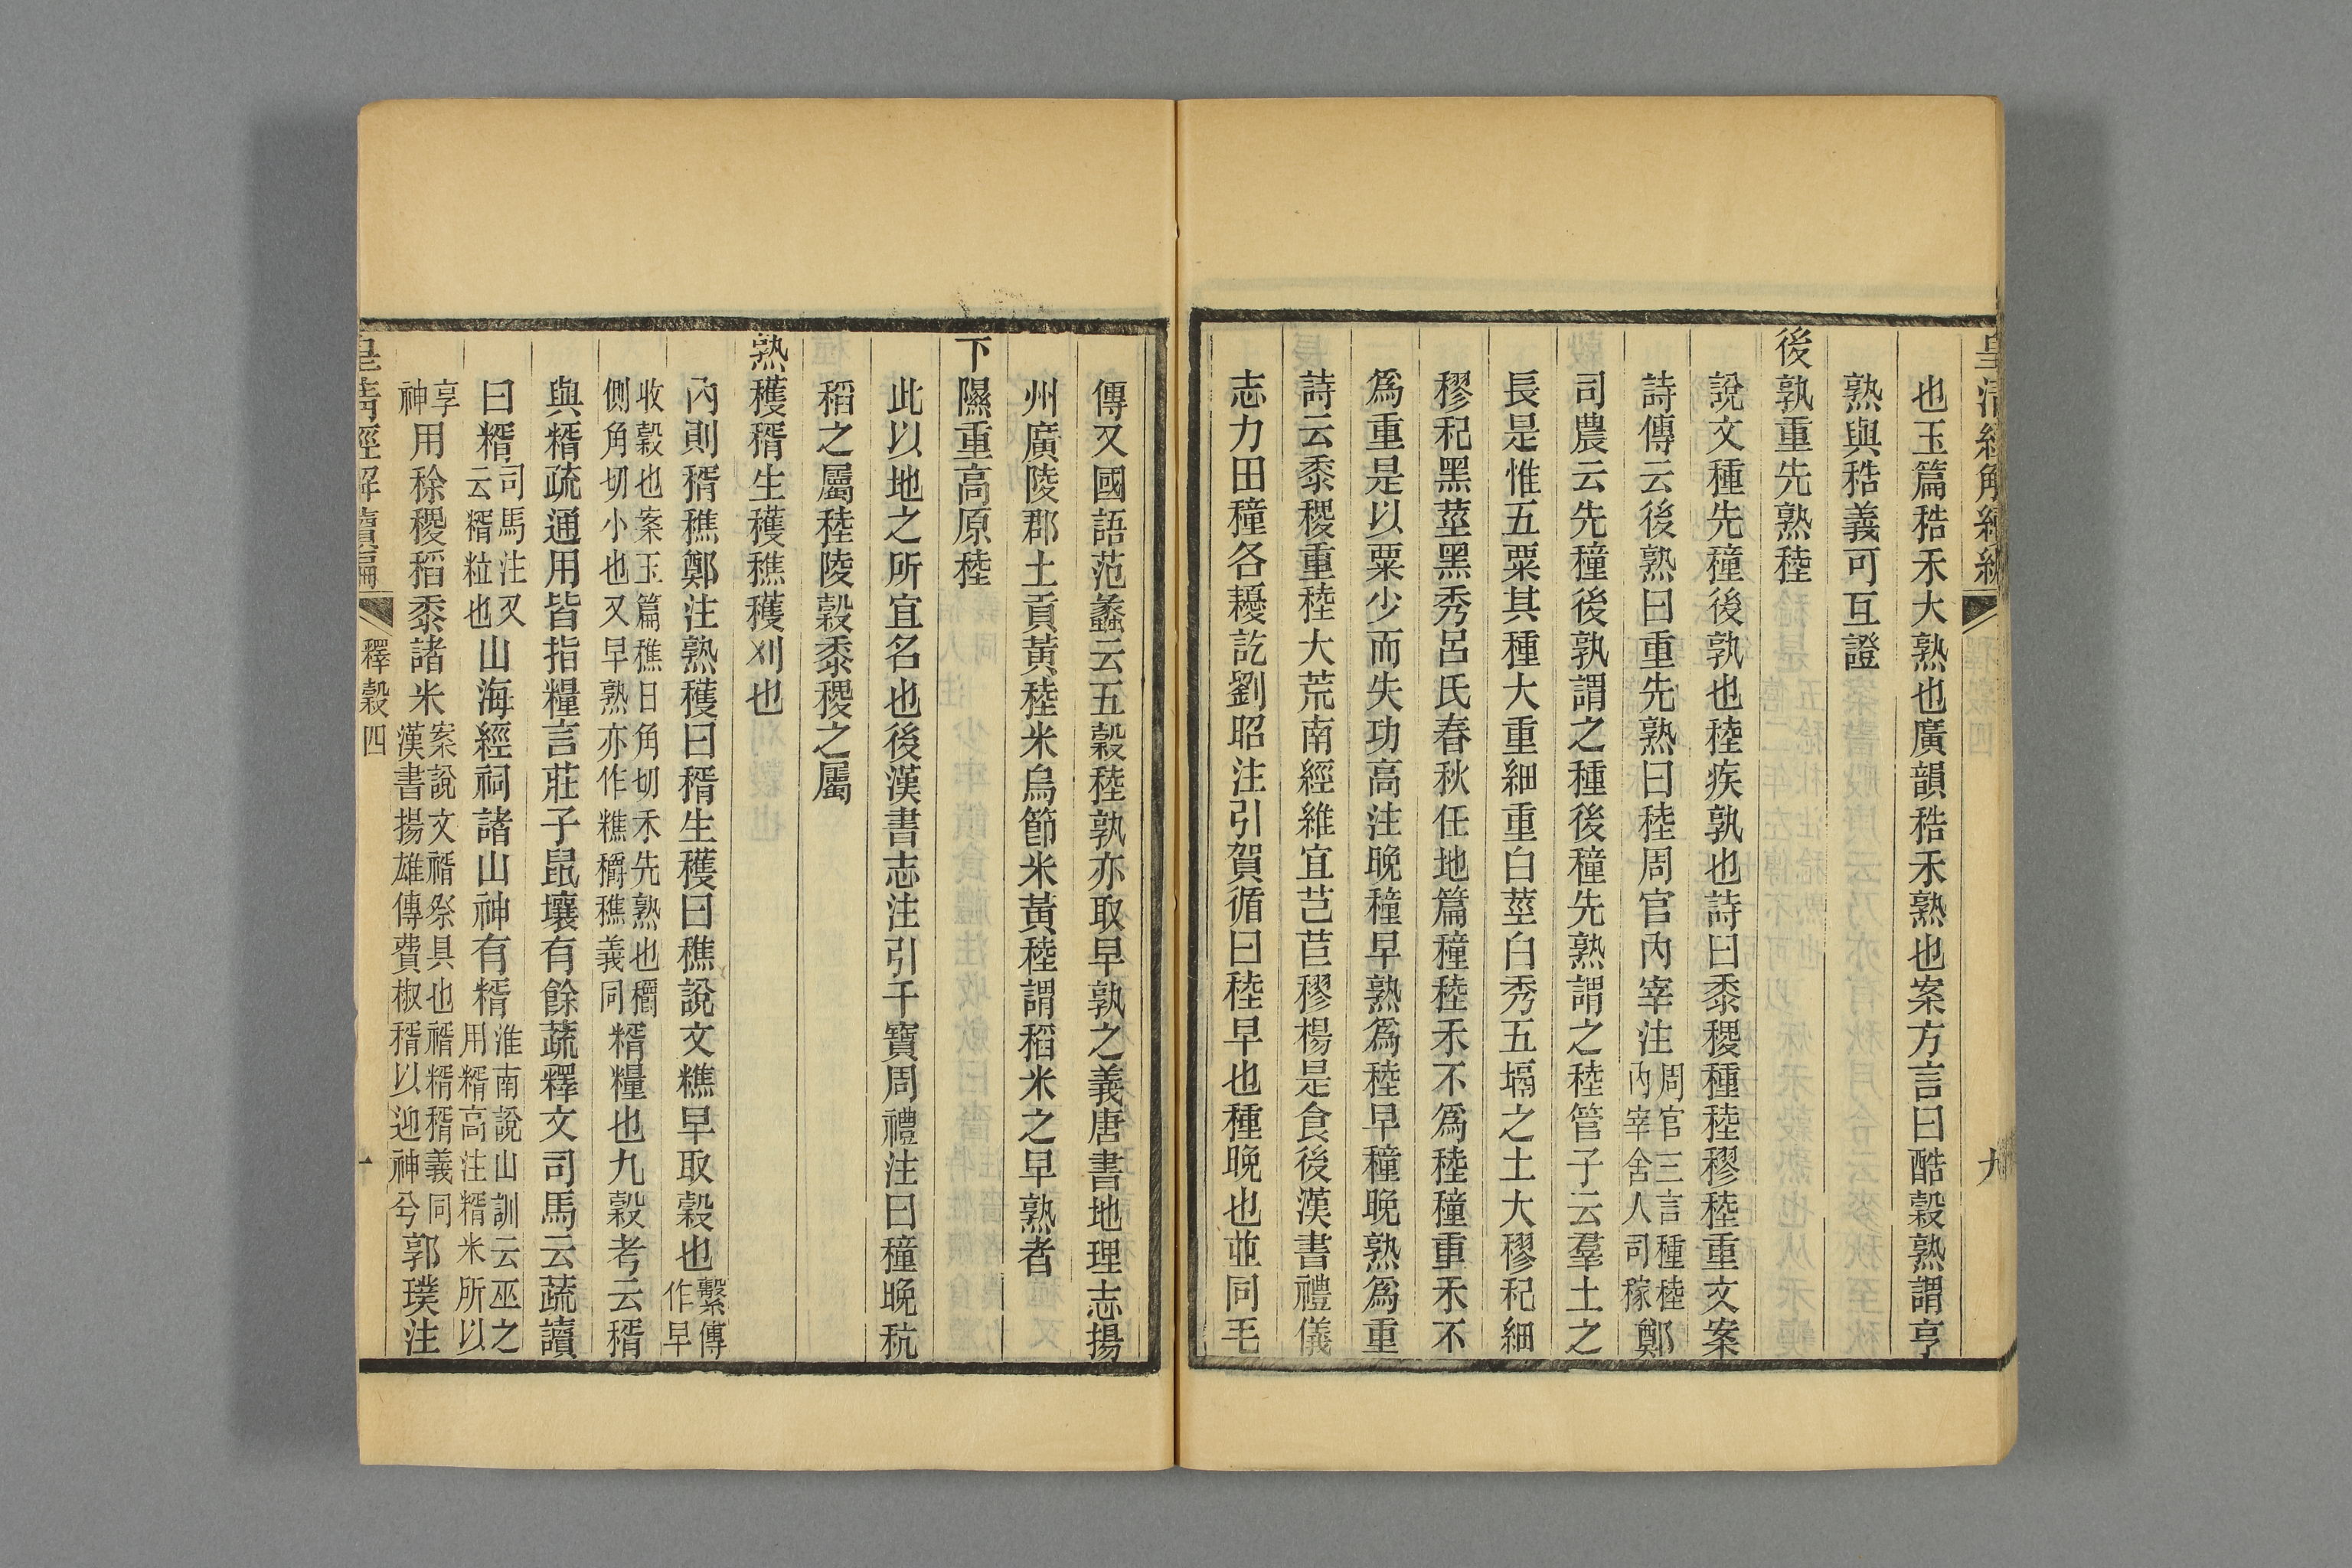 也玉篇秸禾大熟也廣韻秸禾熟也案方言曰酷穀熟謂亨
熟與秸義可互證
後孰重先熟稑
說文種先穜後孰也稑疾孰也詩曰黍稷種稑穋稑重文案
詩傳云後熟曰重先熟曰稑周官內宰注周官三言種稑鄭內宰舍人司稼
司農云先穜後孰謂之種後穜先熟謂之稑管子云羣土之
長是惟五粟其種大重細重白莖白秀五塥之土大穋秬細
穋秬黑莖黑秀呂氏春秋任地篇穜稑禾不爲稑穜重禾不
爲重是以粟少而失功高注晚穜早熟爲稑早穜晚熟爲重
詩云黍稷重稑大荒南經維宜芑苣穋楊是食後漢書禮儀
志力田穜各耰訖劉昭注引賀循曰稑早也種晚也並同毛
傳又國語范蠡云五穀稑孰亦取早孰之義唐書地理志揚
州廣陵郡土貢黃稑米烏節米黃稑謂稻米之早熟者
下隰重高原稑
此以地之所宜名也後漢書志注引干寶周禮注曰穜晚秔
稻之屬稑陵穀黍稷之屬
熟穫稰生穫穛穫刈也
內則稰穛鄭注熟穫曰稰生穫曰穛說文糕早取穀也繫傳作早
收穀也案玉篇穛日角切禾先熟也穱側角切小也又早熟亦作糕穱穛義同糈糧也九穀考云稰
與糈疏通用皆指糧言莊子鼠壤有餘蔬釋文司馬云蔬讀
曰糈司馬注又云糈粒也山海經祠諸山神有糈淮南說山訓云巫之用糈高注糈米所以
享神用稌稷稻黍諸米案說文褙祭具也褙糈稰義同漢書揚雄傳費椒稰以迎神兮郭璞注
釋穀四